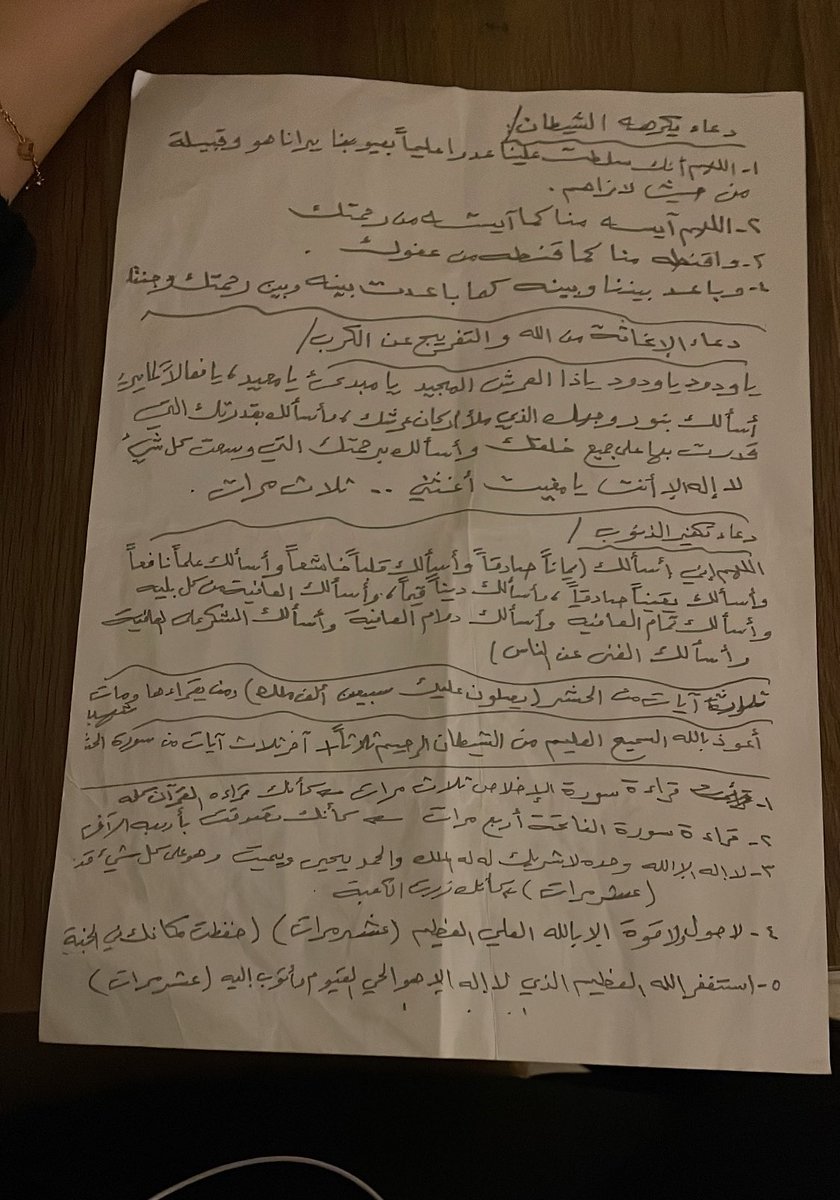 دعاء يكرهه الشيطان/
١- اللهم أنك سلطت علينا عدوا عليماً بعيوبنا يرانا هو وقبيلة
من حيث لا نراهم .
٢- اللهم آيسه منا كما آيسته من رحمتك
٣- واقنطه منا كما قنطه من عفوك .
٤- وباعد بيننا وبينه كما باعدت بينه وبين رحمتك وجنتك
دعاء الإغاثة من الله والتفريج عن الكرب/
يا ودود يا ودود ياذا العرش المجيد يا مبدئ يا معيد، يا فعالاً لما يريد
أسألك بنور وجهك الذي ملأ أركان عرشك، وأسألك بقدرتك التي
قدرت بها على جميع خلقك وأسألك برحمتك التي وسعت كل شيء
لا إله إلا أنت يا مغيث أغثني .. ثلاث مرات .
دعاء تكفير الذنوب /
اللهم إني أسألك إيماناً صادقاً وأسألك قلباً خاشعاً وأسألك علماً نافعاً
وأسألك يقيناً صادقاً، وأسألك ديناً قيماً، وأسألك العافية من كل بليه
وأسألك تمام العافيه وأسألك دوام العافية وأسألك الشكر على العافية
وأسألك الغنى عن الناس)
ثلاث آيات من الحشر (يصلون عليك سبعين ألف ملك) ومن يقراءها ومات شهيد
أعوذ بالله السميع العليم من الشيطان الرجيم ثلاثاً آخر ثلاث آيات من سورة الحشر
١- قراءة سورة الإخلاص ثلاث مرات كأنك قراءه القرآن كله
٢- قراءة سورة الفاتحة أربع مرات كأنك تصدقت بأربعه آلاف
٣- لا إله إلا الله وحده لا شريك له له الملك والحمد يحيي ويميت وهو على كل شيء قد
(عشر مرات) كأنك زرت الكعبة .
٤- لا حول ولا قوة إلا بالله العلي العظيم (عشر مرات) (حفظت مكانك في الجنة
٥- استغفر الله العظيم الذي لا إله إلا هو الحي القيوم وأتوب إليه (عشر مرات)